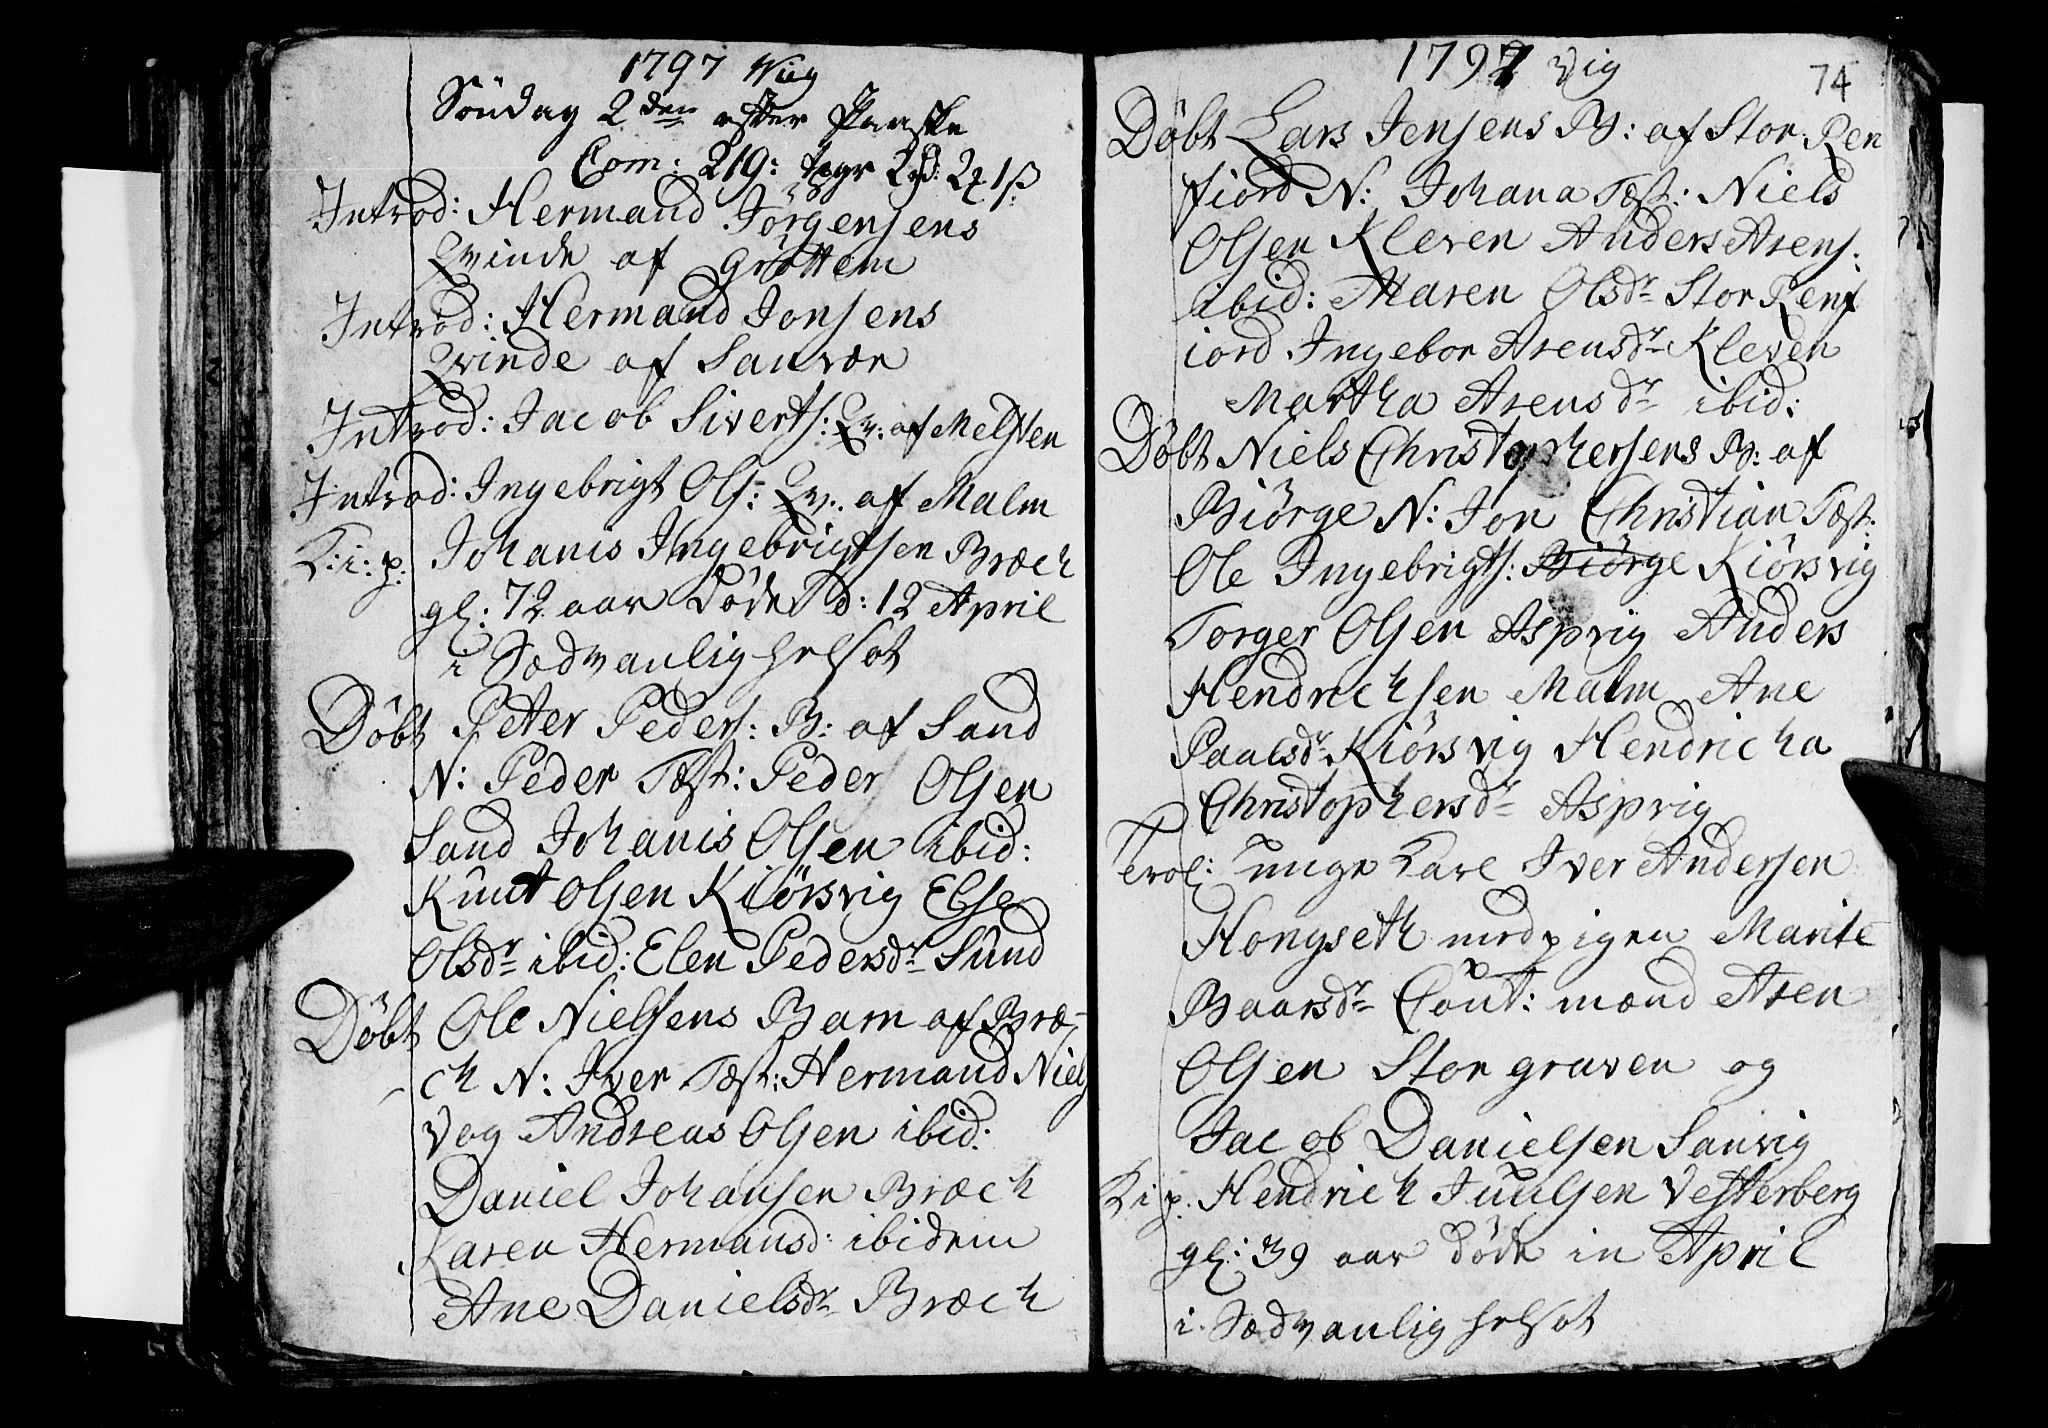 1797 Wiig
Söndag 2den efter Paaske
Com: 219:
Introd: Hermand Jörgensens
Qvinde af Gröttem
Introd: Hermand Jonsens
Qvinde af Sanvær
Introd: Jacob Siverts: Qv: af Melsten
Introd: Ingebrigt Ols: Qv. af Malm
K: i: p: Johanis Ingebrigtsen Bræch
gl: 72 aar döde d: 12 April
i Sædvanlig helsot
Döbt Peter Peders: B: af Sand
N: Peder Tæst: Peder Olsen
Sand Johanis Olsen ibid:
Knut Olsen Kiörsvig Else
Olsdr ibid: Elen Pedersdr Sund
Döbt Ole Nielsens Barn af Bræ-
ch N: Iver Tæst: Hermand Niels
Vog Andreas Olsen ibid:
Daniel Johansen Bræch
Karen Hermansd: ibidem
Ane Danielsdr Bræch
1797 Vig
74
Döbt Lars Jensens B: af Stor Ren
fiord N: Johana Tæst: Niels
Olsen Kleven Anders Arens:
ibid: Maren Olsdr Stor Renf
iord Ingebor Arensdr Kleven
Martha Arensdr ibid:
Döbt Niels Christophersens B: af
Biörge N: Jon Christian Tæst:
Ole Ingebrigts: Biörge Kiörsvig
Torger Olsen Asprig Anders
Hendrichsen Malm Ane
Paalsdr Kiörsvig Hendricha
Christophersdr Asprig
Trol: unge Karl Iver Andersen
Hongseth med pigen Marite
Baarsdr Cout: mænd Aren
Olsen Storgraven og
Jacob Danielsen Sanvig
K i p: Hendrich Juulsen Vesterberg
gl: 39 aar döde in April
i Sædvanlig helsot